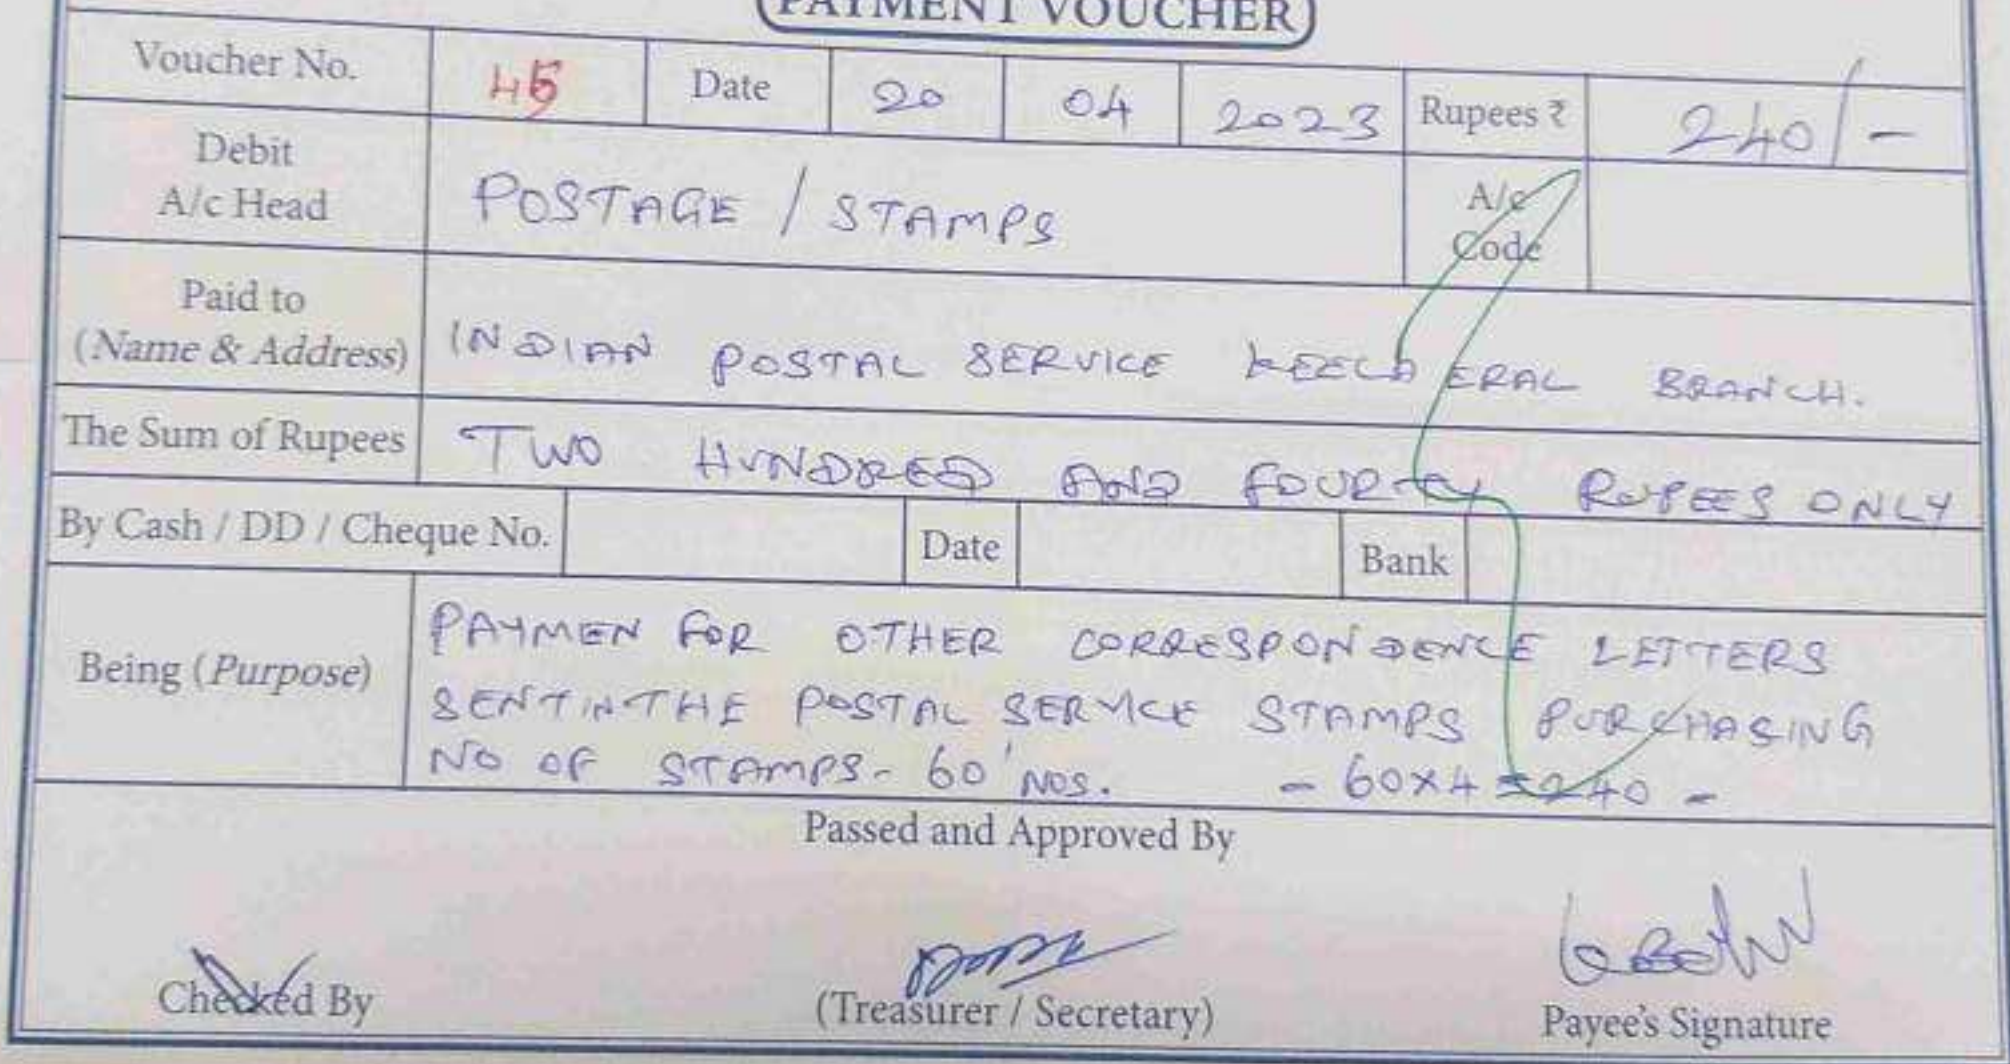 PAYMENT VOUCHER
Voucher No. 45 Date 20 04 2023 Rupees ₹ 240/-
Debit
A/c Head
POSTAGE / STAMPS
A/c
Code
Paid to
(Name & Address)
INDIAN POSTAL SERVICE KEELA ERAL BRANCH.
The Sum of Rupees TWO HUNDRED AND FOURTY RUPEES ONLY
By Cash / DD / Cheque No. Date Bank
Being (Purpose)
PAYMEN FOR OTHER CORRESPONDENCE LETTERS
SENT IN THE POSTAL SERVICE STAMPS PURCHASING
NO OF STAMPS- 60 NOS. - 60X4 =240 -
Passed and Approved By
Checked By (Treasurer / Secretary) Payee's Signature